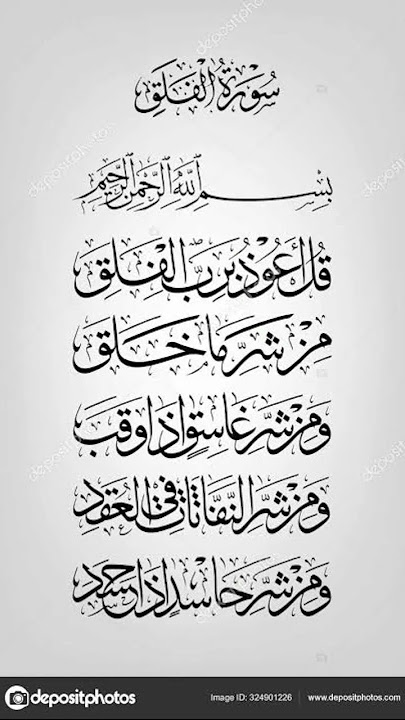 سورة الفلق
بسم الله الرحمن الرحيم
قل أعوذ برب الفلق
من شر ما خلق
ومن شر غاسق إذا وقب
ومن شر النفاثات في العقد
ومن شر حاسد إذا حسد
depositphotos
Image ID: 324901226 www.depositphotos.com